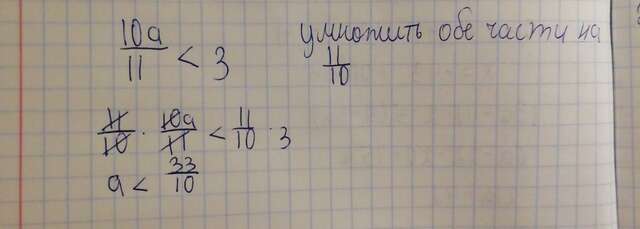 10a/11 < 3 умножить обе части на
11/10
11/10 · 10a/11 < 11/10 · 3
a < 33/10